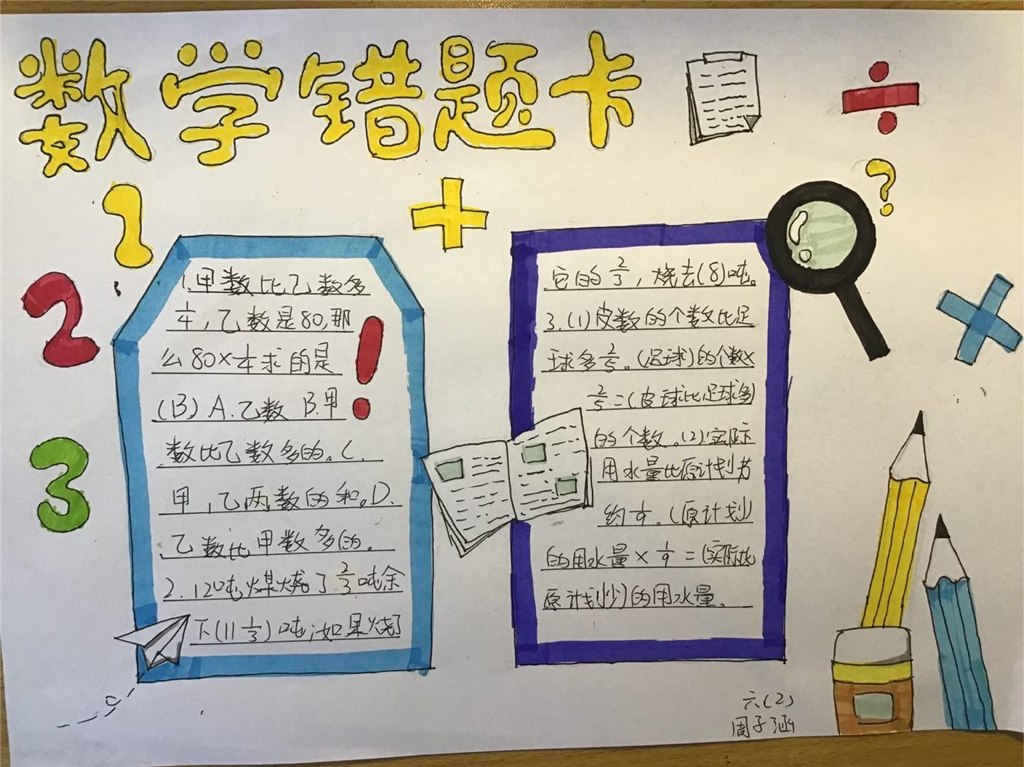 数学错题卡
1
2
3
1.甲数比乙数多
1/4,乙数是80,那
么80×1/4求的是
(B) A.乙数 B.甲
数比乙数多的。C.
甲,乙两数的和。D.
乙数比甲数多的。
2.12吨煤烧了2/3吨余
下(11 1/3)吨;如果烧了
它的2/3,烧去(8)吨。
3.(1)皮数的个数比足
球多2/5。(足球)的个数×
2/5=(皮球比足球多)
的个数。(2)实际
用水量比原计划节
约1/9。(原计划)
的用水量×1/9=(实际比
原计划少)的用水量。
六(2)
周子涵